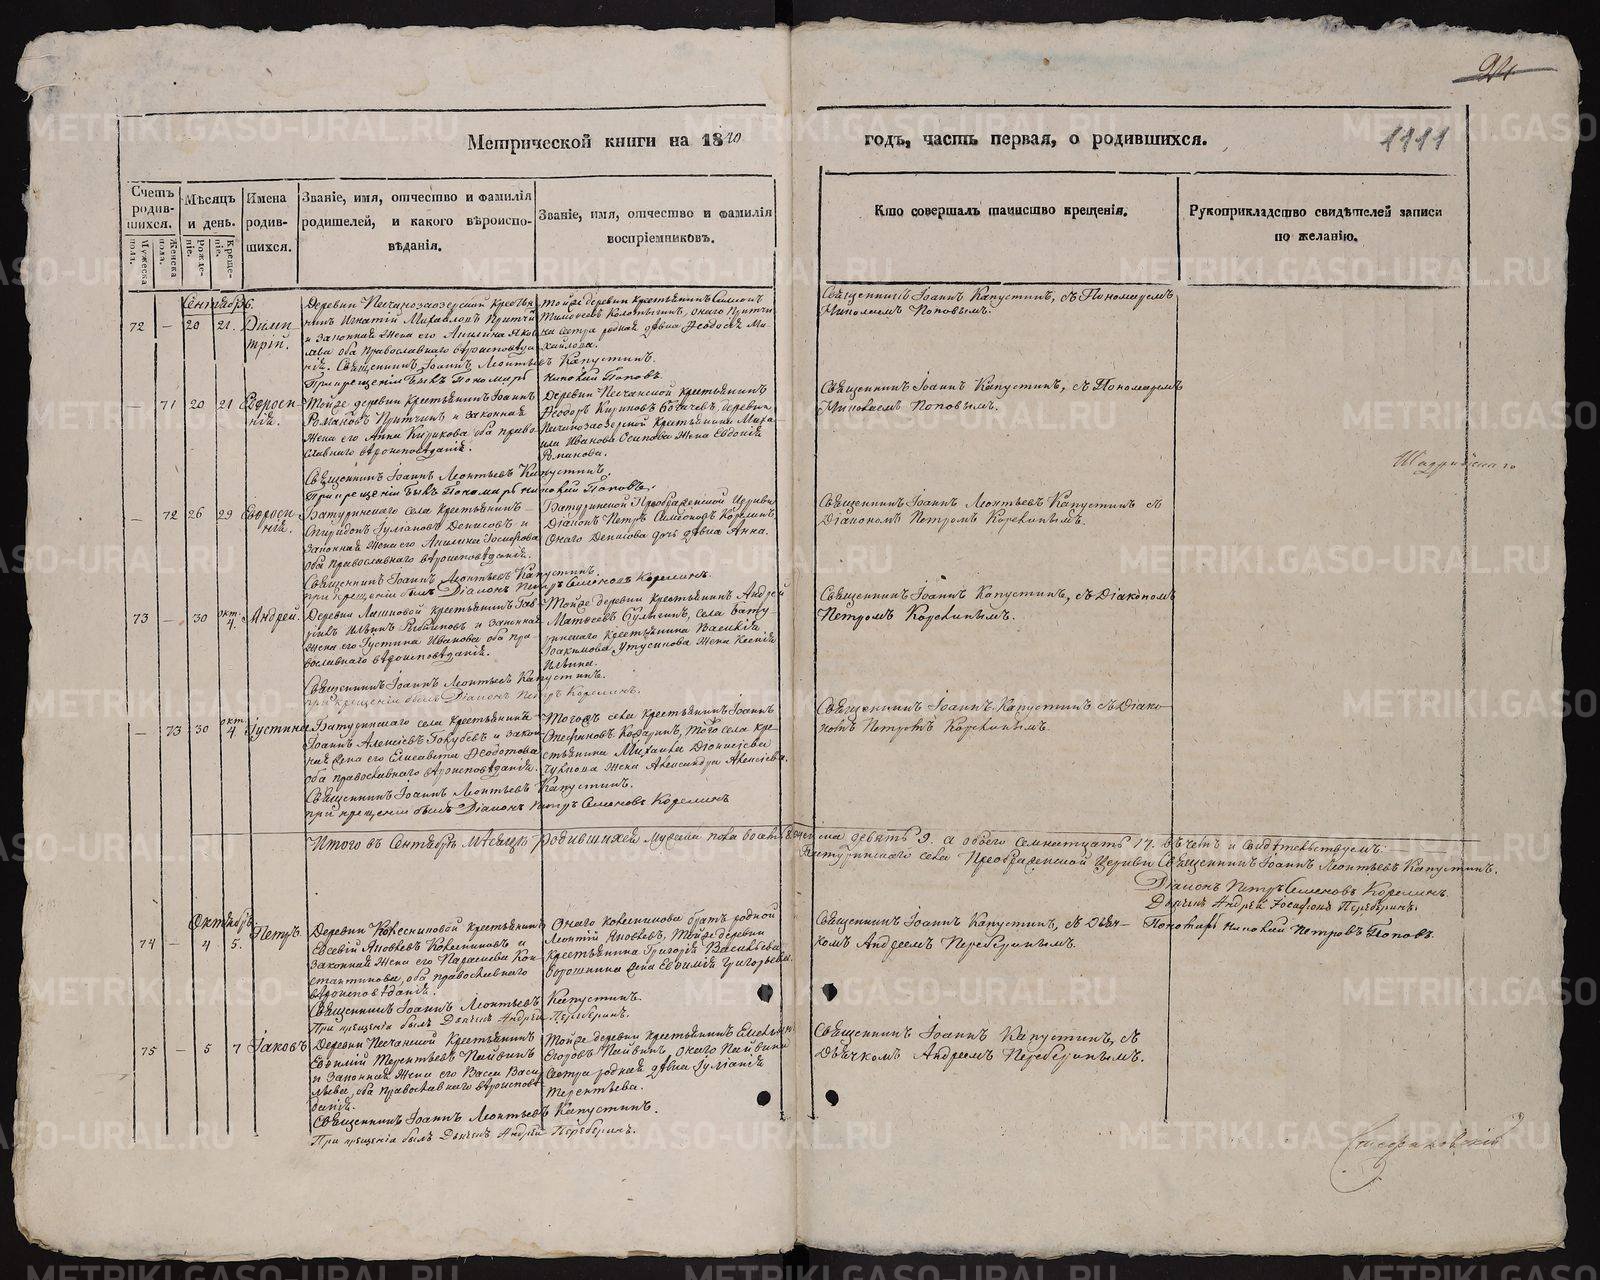 24
Метрической книги на 1840
годъ, часть первая, о родившихся.
1111
Счетъ родив-шихся.
Мужеска пола.
Женска пола.
Мѣсяцъ и день.
Рожде-ніе.
Креще-ніе.
Имена родив-шихся.
Званіе, имя, отчество и фамилія
родителей, и какого вѣроиспо-
вѣданія.
Званіе, имя, отчество и фамилія
воспріемниковъ.
Кто совершалъ таинство крещенія.
Рукоприкладство свидѣтелей записи
по желанію.
Сентябрь
72 — 20 21. Дими-
трій.
Деревни Песчаноозерской крестья-
нинъ Игнатій Михайловъ Притчи
и законная жена его Акилина Яков
лва оба православнаго вѣроисповѣда
нія. Священникъ Іоаннъ Леонтьевъ Капустинъ.
При крещеніи былъ Пономарь Николай Поповъ.
Тойже деревни крестьянинъ Симеонъ
Тимофеевъ Колотыгинъ, онаго Притчи
на сестра родная дѣвка Ѳеодосія Ми
хайлова.
Священникъ Іоаннъ Капустинъ, съ Пономаремъ
Николаемъ Поповымъ.
— 71 20 21 Евфроси-
нія.
Тойже деревни крестьянинъ Іоаннъ
Романовъ Притчинъ и законная
жена его Анна Кирикова оба право
славнаго вѣроисповѣданія.
Священникъ Іоаннъ Леонтьевъ Капустинъ.
При крещеніи былъ Пономарь Николай Поповъ.
Деревни Песчанской крестьянинъ
Ѳеодоръ Кириковъ Богачевъ, деревни
Песчаноозерской крестьянина Миха
ила Иванова Осипова жена Евдокія
Романова.
Священникъ Іоаннъ Капустинъ, съ Пономаремъ
Николаемъ Поповымъ.
Шадринскаго
— 72 26 29 Евфроси-
нія.
Батуринскаго села крестьянинъ
Спиридонъ Іуліановъ Денисовъ и
законная жена его Акилина Іосифова
оба православнаго вѣроисповѣданія.
Священникъ Іоаннъ Леонтьевъ Капустинъ.
При крещеніи былъ Діаконъ Петръ Семеновъ Корелинъ.
Батуринской Преображенской Церкви
Діаконъ Петръ Симеоновъ Корелинъ,
онаго Денисова дочь дѣвка Анна.
Священникъ Іоаннъ Леонтьевъ Капустинъ съ
Діакономъ Петромъ Корелинымъ.
73 — 30 окт. 4. Андрей.
жена его Іустина Иванова оба пра-
вославнаго вѣроисповѣданія.
Священникъ Іоаннъ Леонтьевъ Капустинъ.
при крещеніи былъ Діаконъ Петръ Корелинъ.
Тойже деревни крестьянинъ Андрей
Матвеевъ Булыгинъ, села Бату-
ринскаго крестьянина Василія
Іоакимова Утусикова жена Ксенія
Ильина.
Священникъ Іоаннъ Капустинъ, съ Діакономъ
Петромъ Корелинымъ.
— 73 30 окт. 4 Іустина
Батуринскаго села крестьянинъ
Іоаннъ Алексіевъ Голубевъ и закон
ная жена его Елисавета Ѳеодотова
оба православнаго вѣроисповѣданія.
Священникъ Іоаннъ Леонтьевъ Капустинъ.
При крещеніи былъ Діаконъ Петръ Семеновъ Корелинъ
Тогожъ села крестьянинъ Іоаннъ
Стефановъ Кокаринъ, того села кре-
стьянина Михаила Діонисіева
жена Александра Алексіева.
Священникъ Іоаннъ Капустинъ съ Діако-
номъ Петромъ Корелинымъ.
Итого въ Сентябрѣ мѣсяцѣ родившихся мужеска пола восемь 8. женска девять 9. а обоего семнатцать 17. въ чемъ и свидѣтельствуемъ:
Батуринскаго села Преображенской Церкви Священникъ Іоаннъ Леонтьевъ Капустинъ.
Діаконъ Петръ Семеновъ Корелинъ.
Дьячекъ Андрей Іосифовъ Переберинъ.
Пономарь Николай Петровъ Поповъ.
Октябрь
74 — 4 5. Петръ.
Деревни Колесниковой крестьянинъ
Евсевій Яковлевъ Колесниковъ и
законная жена его Параскева Кон
стантинова, оба православнаго
вѣроисповѣданія.
Священникъ Іоаннъ Леонтьевъ Капустинъ.
При крещеніи былъ Дьячекъ Андрей Переберинъ.
Онаго Колесникова братъ родной
Леонтій Яковлевъ, тойже деревни
крестьянина Григорія Васильева
Ворошнина жена Евфимія Григорьева.
Священникъ Іоаннъ Капустинъ, съ Дьяч-
комъ Андреемъ Переберинымъ.
75 — 5 7 Іаковъ
Деревни Песчанской крестьянинъ
Евфимій Терентьевъ Пайвинъ
и законная жена его Васса Васи
льева, оба православнаго вѣроисповѣ
данія.
Священникъ Іоаннъ Леонтьевъ Капустинъ.
При крещеніи былъ Дьячекъ Андрей Переберинъ.
Тойже деревни крестьянинъ Емельян
Егоровъ Пайвинъ, онаго Пайвина
сестра родная дѣвка Іуліанія
Терентьева.
Священникъ Іоаннъ Капустинъ, съ
Дьячкомъ Андреемъ Переберинымъ.
METRIKI.GASO-URAL.RU